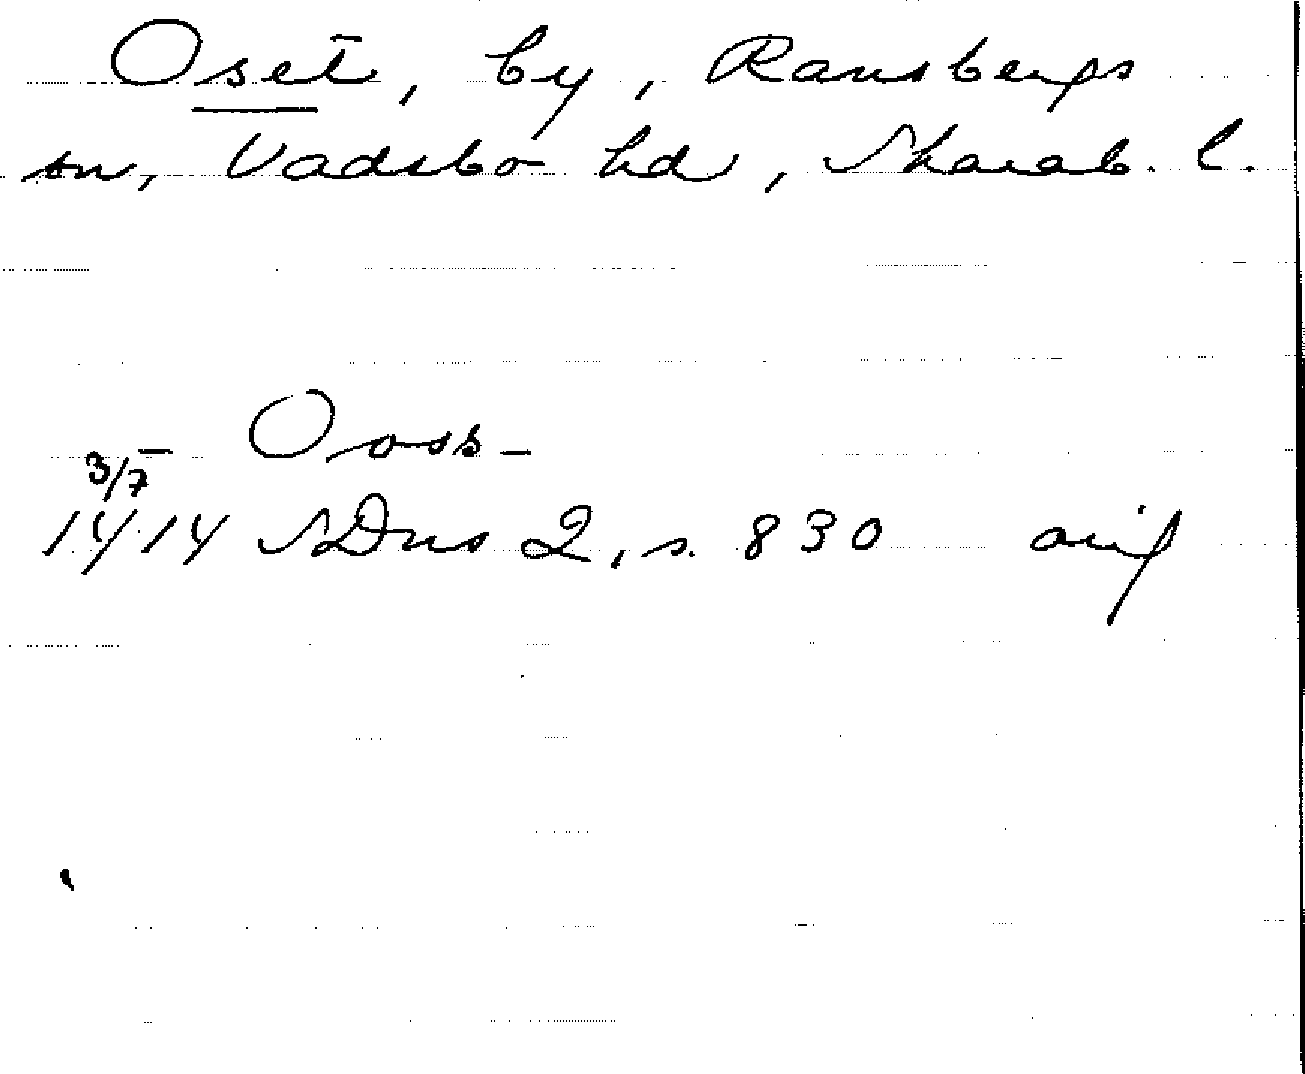 Oset, by, Ransbergs
sn, Vadsbo hd, Skarab. l.
Ooss-
3/7
1414 SDns 2, s. 830 orig